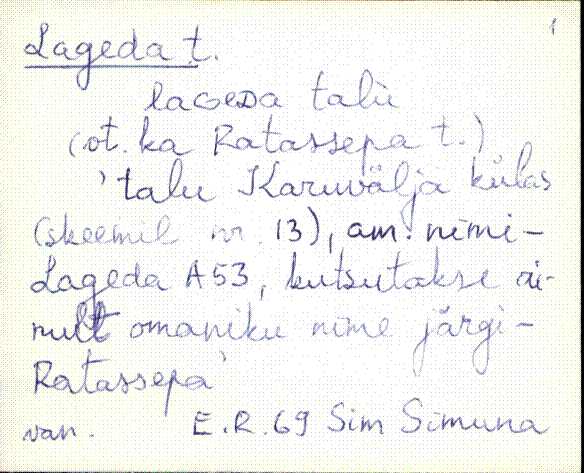 1
Lageda t.
lageda talu
(vt. ka Ratassepa t.)
'talu Karuvälja külas
(skeemil nr. 13), am. nimi-
Lageda A53, kutsutakse ai-
nult omaniku nime järgi-
Ratassepa'
van. E.R. 69 Sim Simuna